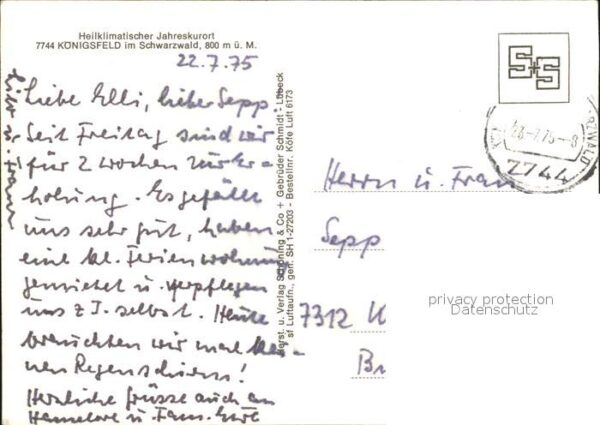 Heilklimatischer Jahreskurort
7744 KÖNIGSFELD im Schwarzwald, 800 m ü. M.
22.7.75
Liebe Elli, lieber Sepp
Seit Freitag sind wir
für 2 Wochen zur Er=
holung. Es gefällt
uns sehr gut, haben
eine kl. Ferienwohnung
gemietet u. verpflegen
uns z T. selbst. Heute
brauchten wir mal kei=
nen Regenschirm!
Herzliche Grüsse auch an
Hannelore u. Fam.
Herst. u. Verlag Schöning & Co + Gebrüder Schmidt - Lübeck
sf Luftaufn., gen. SH 1-27203 - Bestellnr. Köfe Luft 6173
S+S
7744
Herrn u. Frau
Sepp
7312 K
Br
privacy protection
Datenschutz